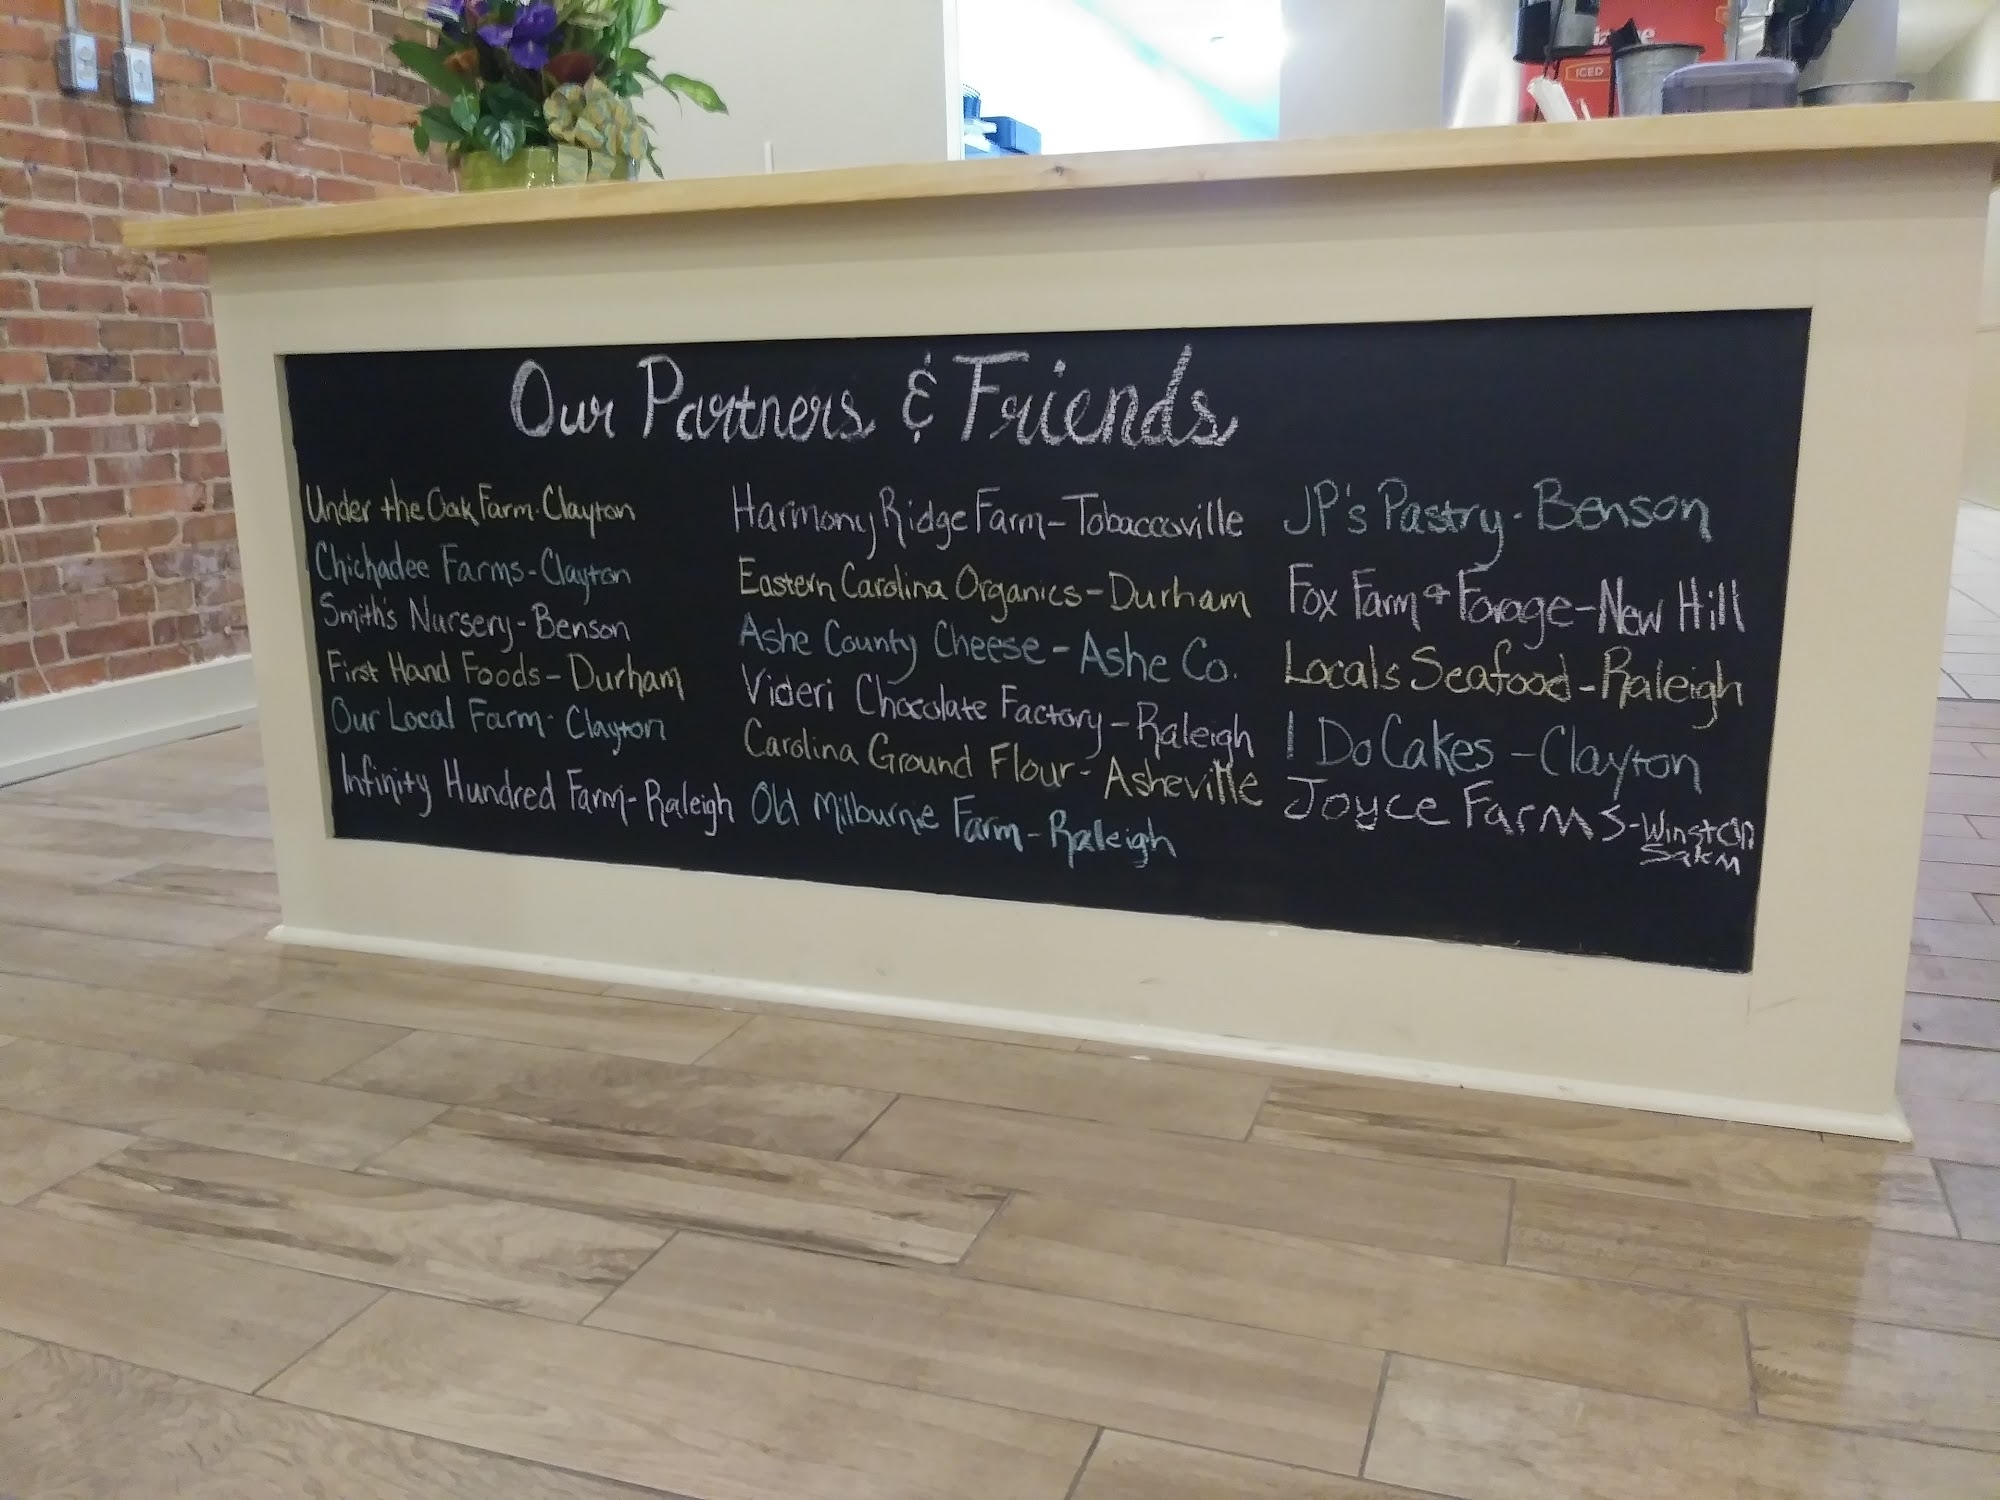 ICED
Our Partners & Friends
Under the Oak Farm - Clayton
Chichadee Farms - Clayton
Smith's Nursery - Benson
First Hand Foods - Durham
Our Local Farm - Clayton
Infinity Hundred Farm - Raleigh
Harmony Ridge Farm - Tobaccoville
Eastern Carolina Organics - Durham
Ashe County Cheese - Ashe Co.
Videri Chocolate Factory - Raleigh
Carolina Ground Flour - Asheville
Old Milburnie Farm - Raleigh
JP's Pastry - Benson
Fox Farm & Forage - New Hill
Locals Seafood - Raleigh
I Do Cakes - Clayton
Joyce Farms - Winston
Salem